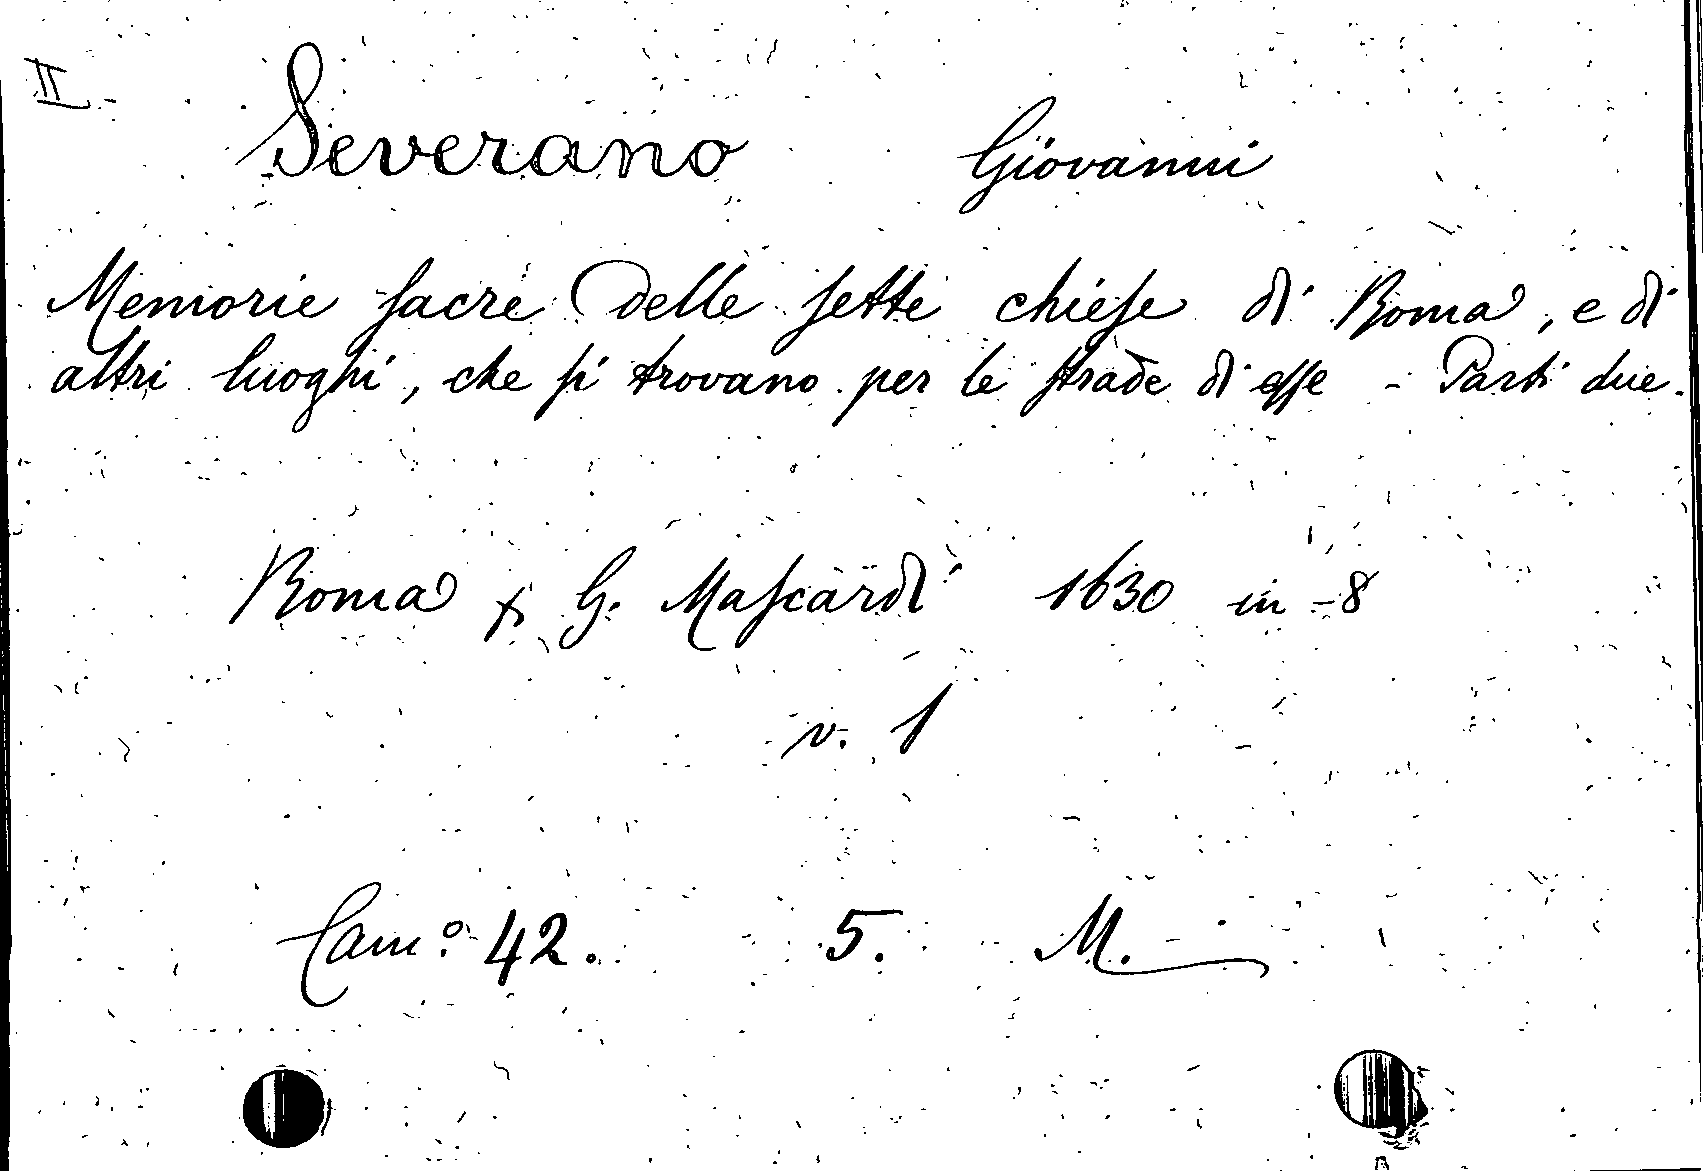 II
Severano Giovanni
Memorie sacre delle sette chiese di Roma, e di
altri luoghi, che si trovano per le strade di esse - Parti due.
Roma x G. Mascardi 1630 in-8
v. 1
Cam.º 42. 5. M.